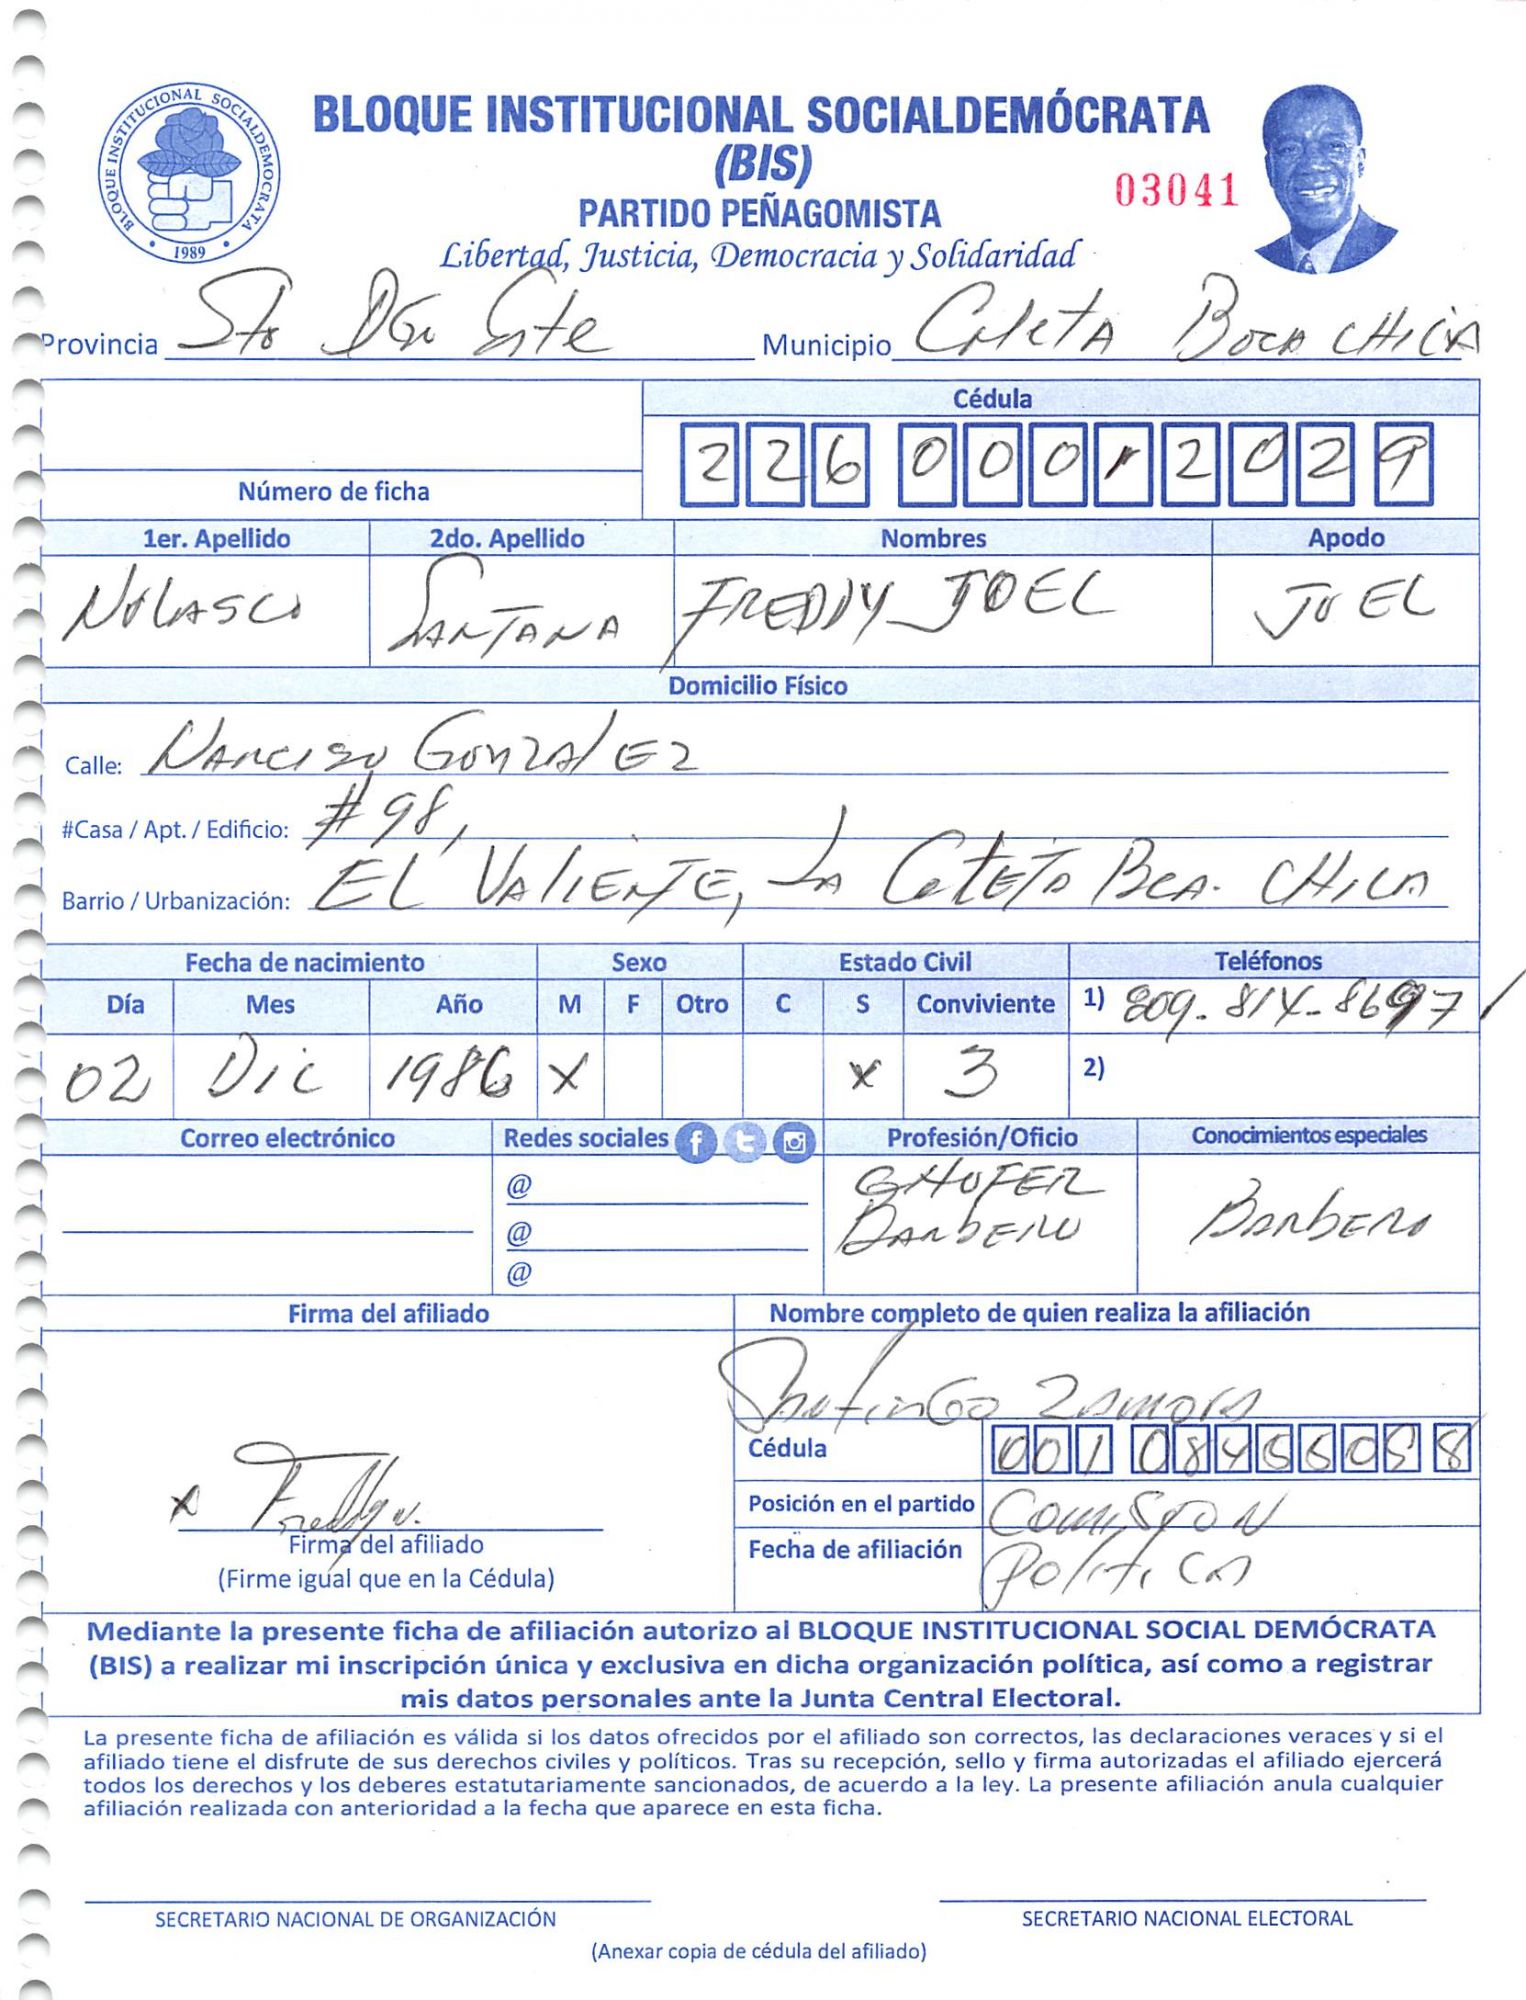 BLOQUE INSTITUCIONAL SOCIALDEMOCRATA
1989
BLOQUE INSTITUCIONAL SOCIALDEMÓCRATA
(BIS)
03041
PARTIDO PEÑAGOMISTA
Libertad, Justicia, Democracia y Solidaridad
Provincia Sto Dgo Este Municipio Caleta Boca CHICA
Cédula
226 000 2029
Número de ficha
1er. Apellido 2do. Apellido Nombres Apodo
NOLASCO SANTANA FREDDY JOEL JOEL
Domicilio Físico
Calle: Narciso GONZALEZ
#Casa / Apt. / Edificio: #98,
Barrio / Urbanización: EL VALIENTE, LA CALETA BCA. CHICA
Fecha de nacimiento Sexo Estado Civil Teléfonos
Día Mes Año M F Otro C S Conviviente 1) 809-814-8697
02 Dic 1986 X X 3 2)
Correo electrónico Redes sociales Profesión/Oficio Conocimientos especiales
@ CHOFER
@ BARBERO BARBERO
@
Firma del afiliado Nombre completo de quien realiza la afiliación
Zamora
Cédula 001 08
x Freddy N.
Posición en el partido COMISION
Firma del afiliado
Fecha de afiliación POLITICA
(Firme igual que en la Cédula)
Mediante la presente ficha de afiliación autorizo al BLOQUE INSTITUCIONAL SOCIAL DEMÓCRATA
(BIS) a realizar mi inscripción única y exclusiva en dicha organización política, así como a registrar
mis datos personales ante la Junta Central Electoral.
La presente ficha de afiliación es válida si los datos ofrecidos por el afiliado son correctos, las declaraciones veraces y si el
afiliado tiene el disfrute de sus derechos civiles y políticos. Tras su recepción, sello y firma autorizadas el afiliado ejercerá
todos los derechos y los deberes estatutariamente sancionados, de acuerdo a la ley. La presente afiliación anula cualquier
afiliación realizada con anterioridad a la fecha que aparece en esta ficha.
SECRETARIO NACIONAL DE ORGANIZACIÓN SECRETARIO NACIONAL ELECTORAL
(Anexar copia de cédula del afiliado)